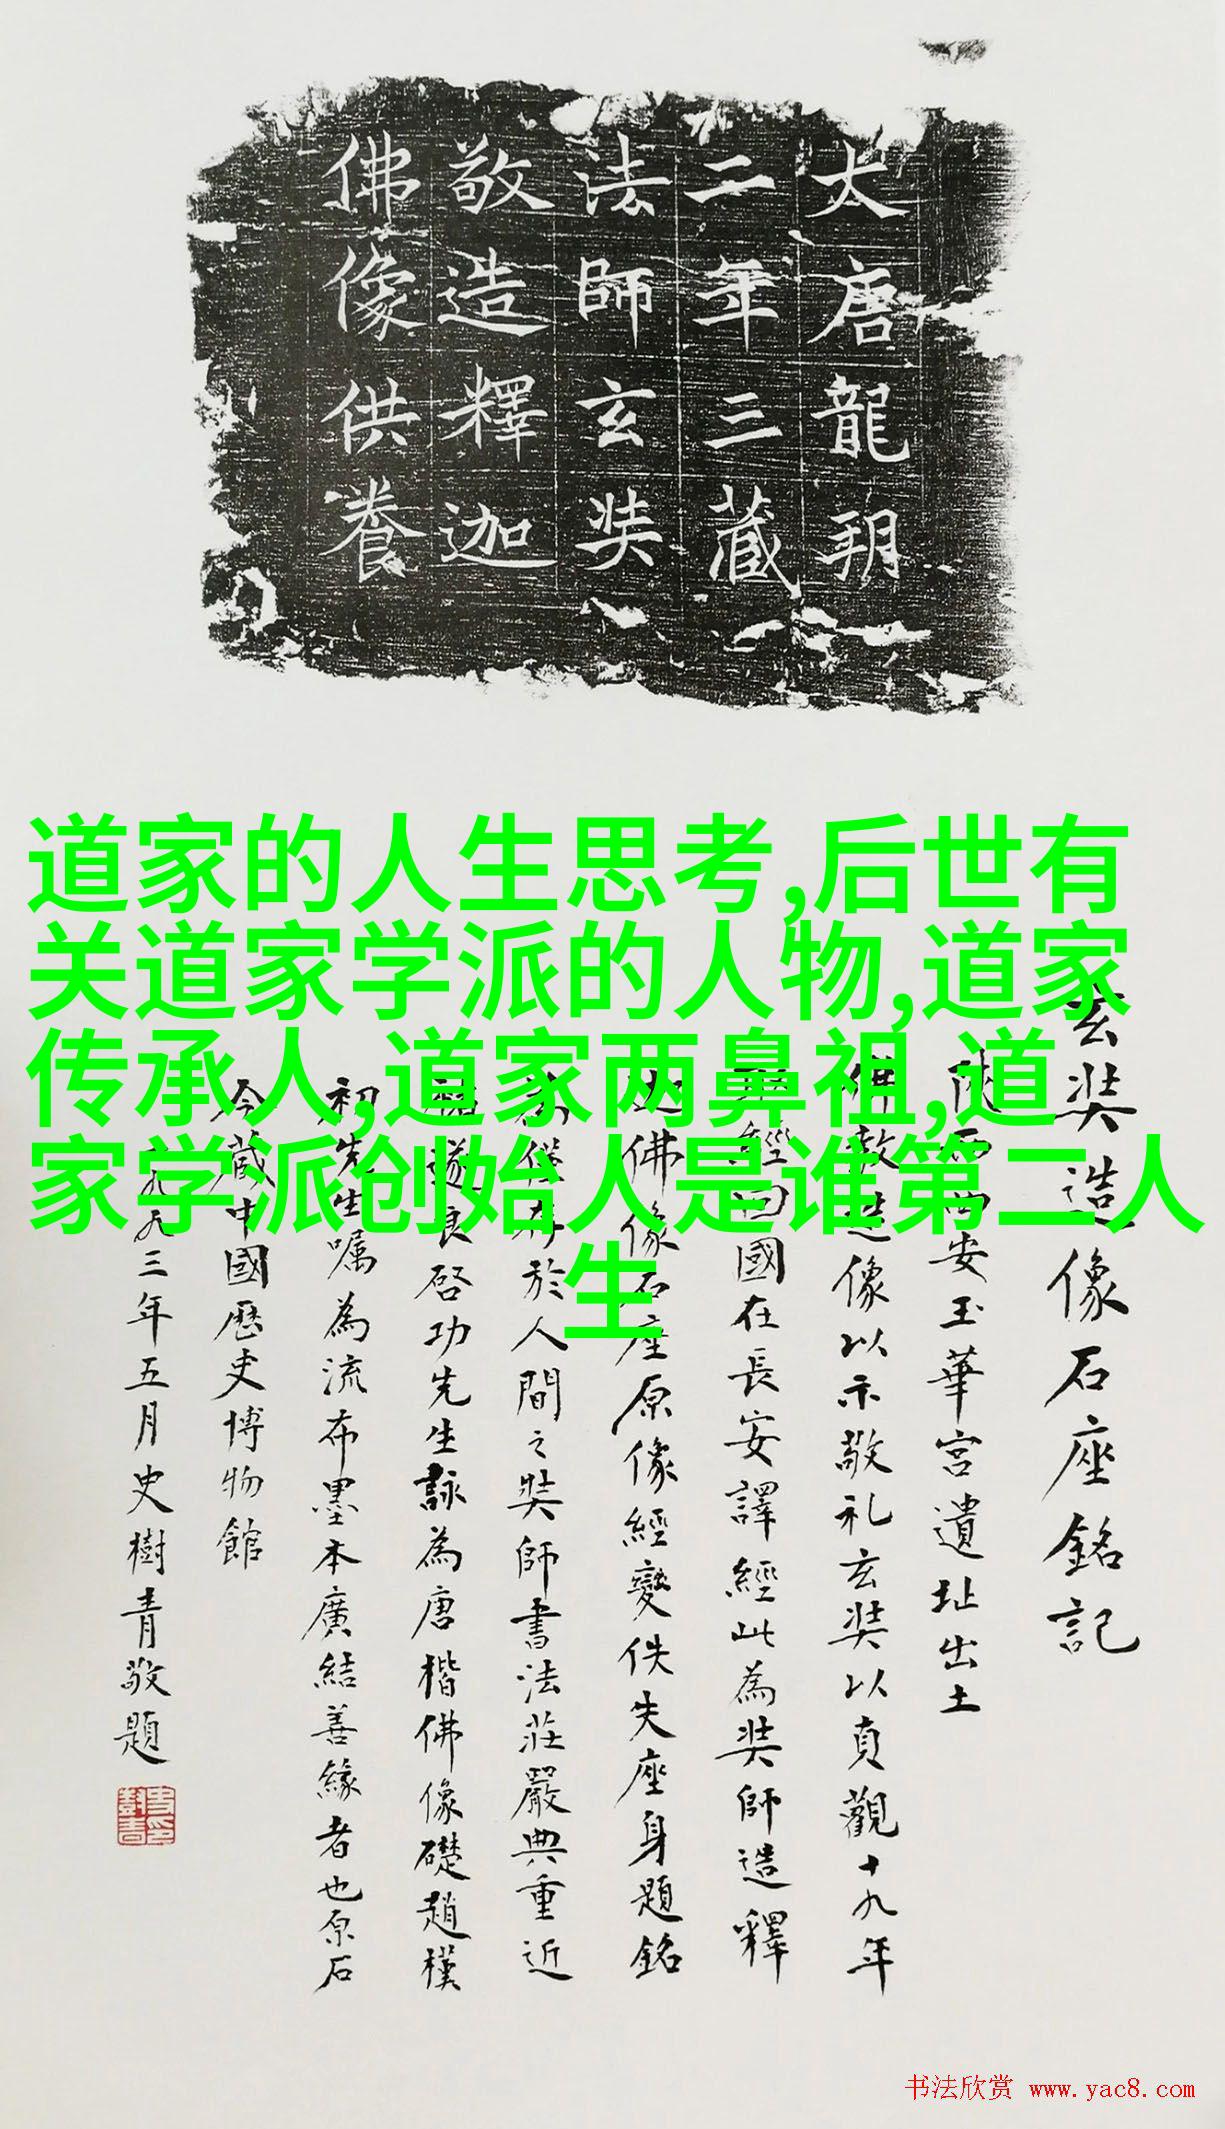 大唐龍朔
二年三藏
法師玄奘
敬造釋迦
佛像供養
道家的人生思考,后世有
关道家学派的人物,道家
传承人,道家两鼻祖,道
家学派创始人是谁第二人
生
玄奘造像石座銘記
陝西西安玉華宮遺址出土
佛教造像以示敬礼玄奘以貞觀十九年
經回國在長安譯經此為奘師造釋
迦佛像石座原像經變佚失座身題銘
僅存於人間之奘師書法莊嚴典重近
褚遂良启功先生詠為唐楷佛像礎趙樸
初先生嘱為流布墨本廣結善緣者也原石
今藏中國歷史博物館
一九九三年五月史樹青敬題
书法欣赏 www.yac8.com